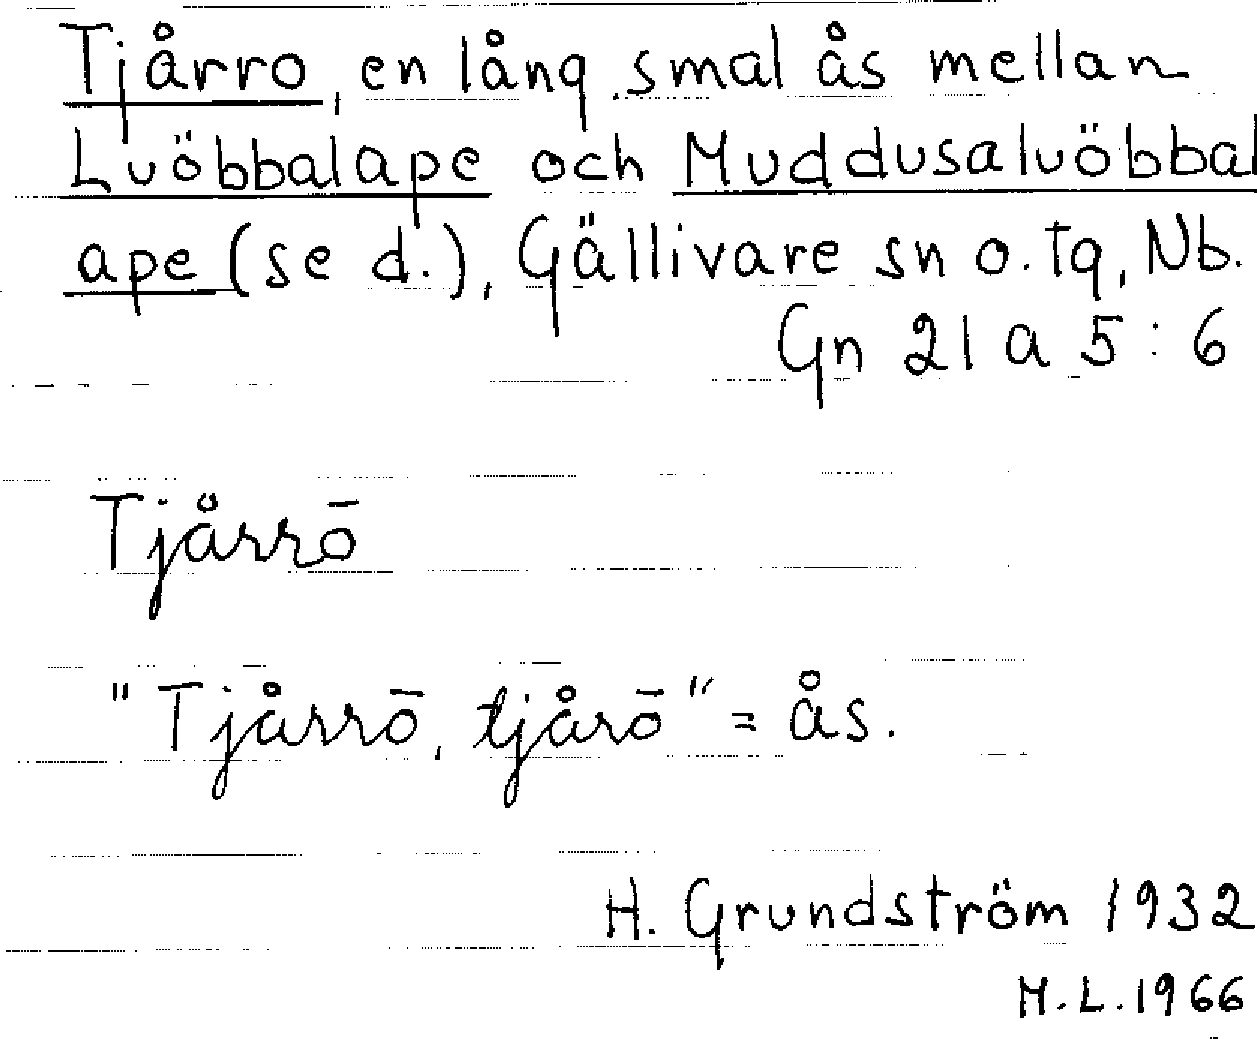 Tjårro, en lång, smal ås mellan
Luöbbalape och Muddusaluöbbal
ape (se d.), Gällivare sn o. tg, Nb.
Gn 21 a 5 : 6
Tjårrō
"Tjårrō, tjårō" = ås.
H. Grundström 1932
M.L. 1966